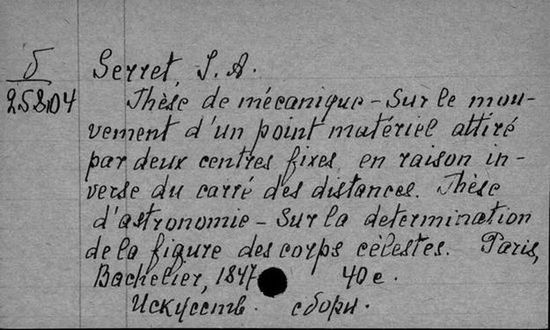 б
25804
Serret, J. A.
Thèse de mécanique – Sur le mou-
vement d'un point matériel attiré
par deux centres fixes, en raison in-
verse du carré des distances. Thèse
d'astronomie – Sur la determination
de la figure des corps célestes. Paris,
Bachelier, 1847 40 c.
Искусств. сборн.